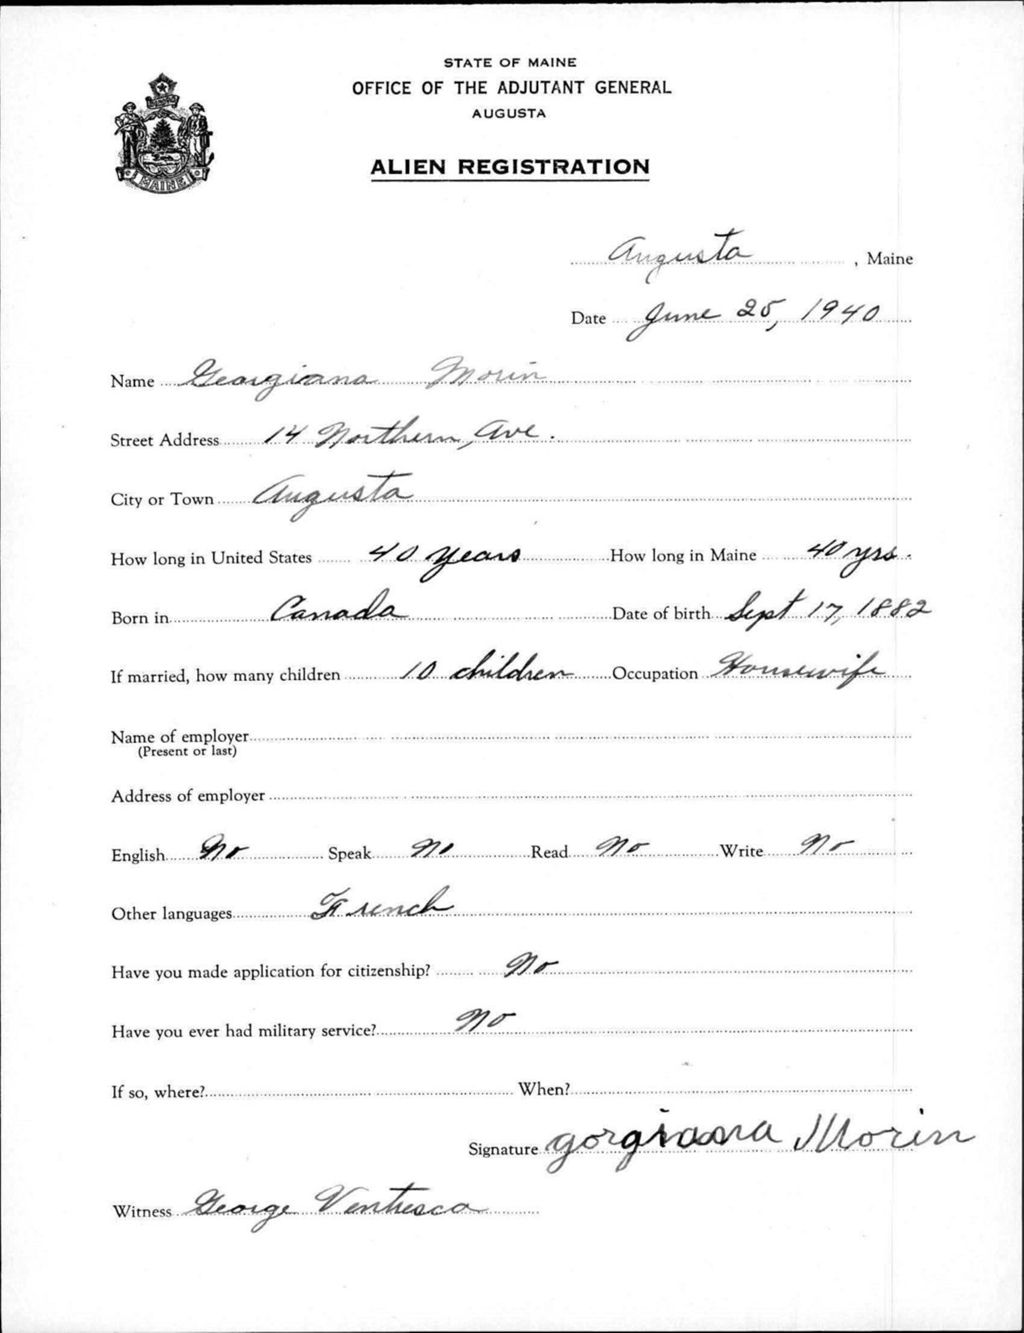 STATE OF MAINE
OFFICE OF THE ADJUTANT GENERAL
AUGUSTA
ALIEN REGISTRATION
MAINE
Augusta, Maine
Date June 25, 1940
Name Georgiana Morin
Street Address 14 Northern Ave.
City or Town Augusta
How long in United States 40 years How long in Maine 40 yrs.
Born in Canada Date of birth Sept 17, 1882
If married, how many children 10 children Occupation Housewife
Name of employer
(Present or last)
Address of employer
English No Speak No Read No Write No
Other languages French
Have you made application for citizenship? No
Have you ever had military service? No
If so, where? When?
Signature gorgiana Morin
Witness George Ventresca